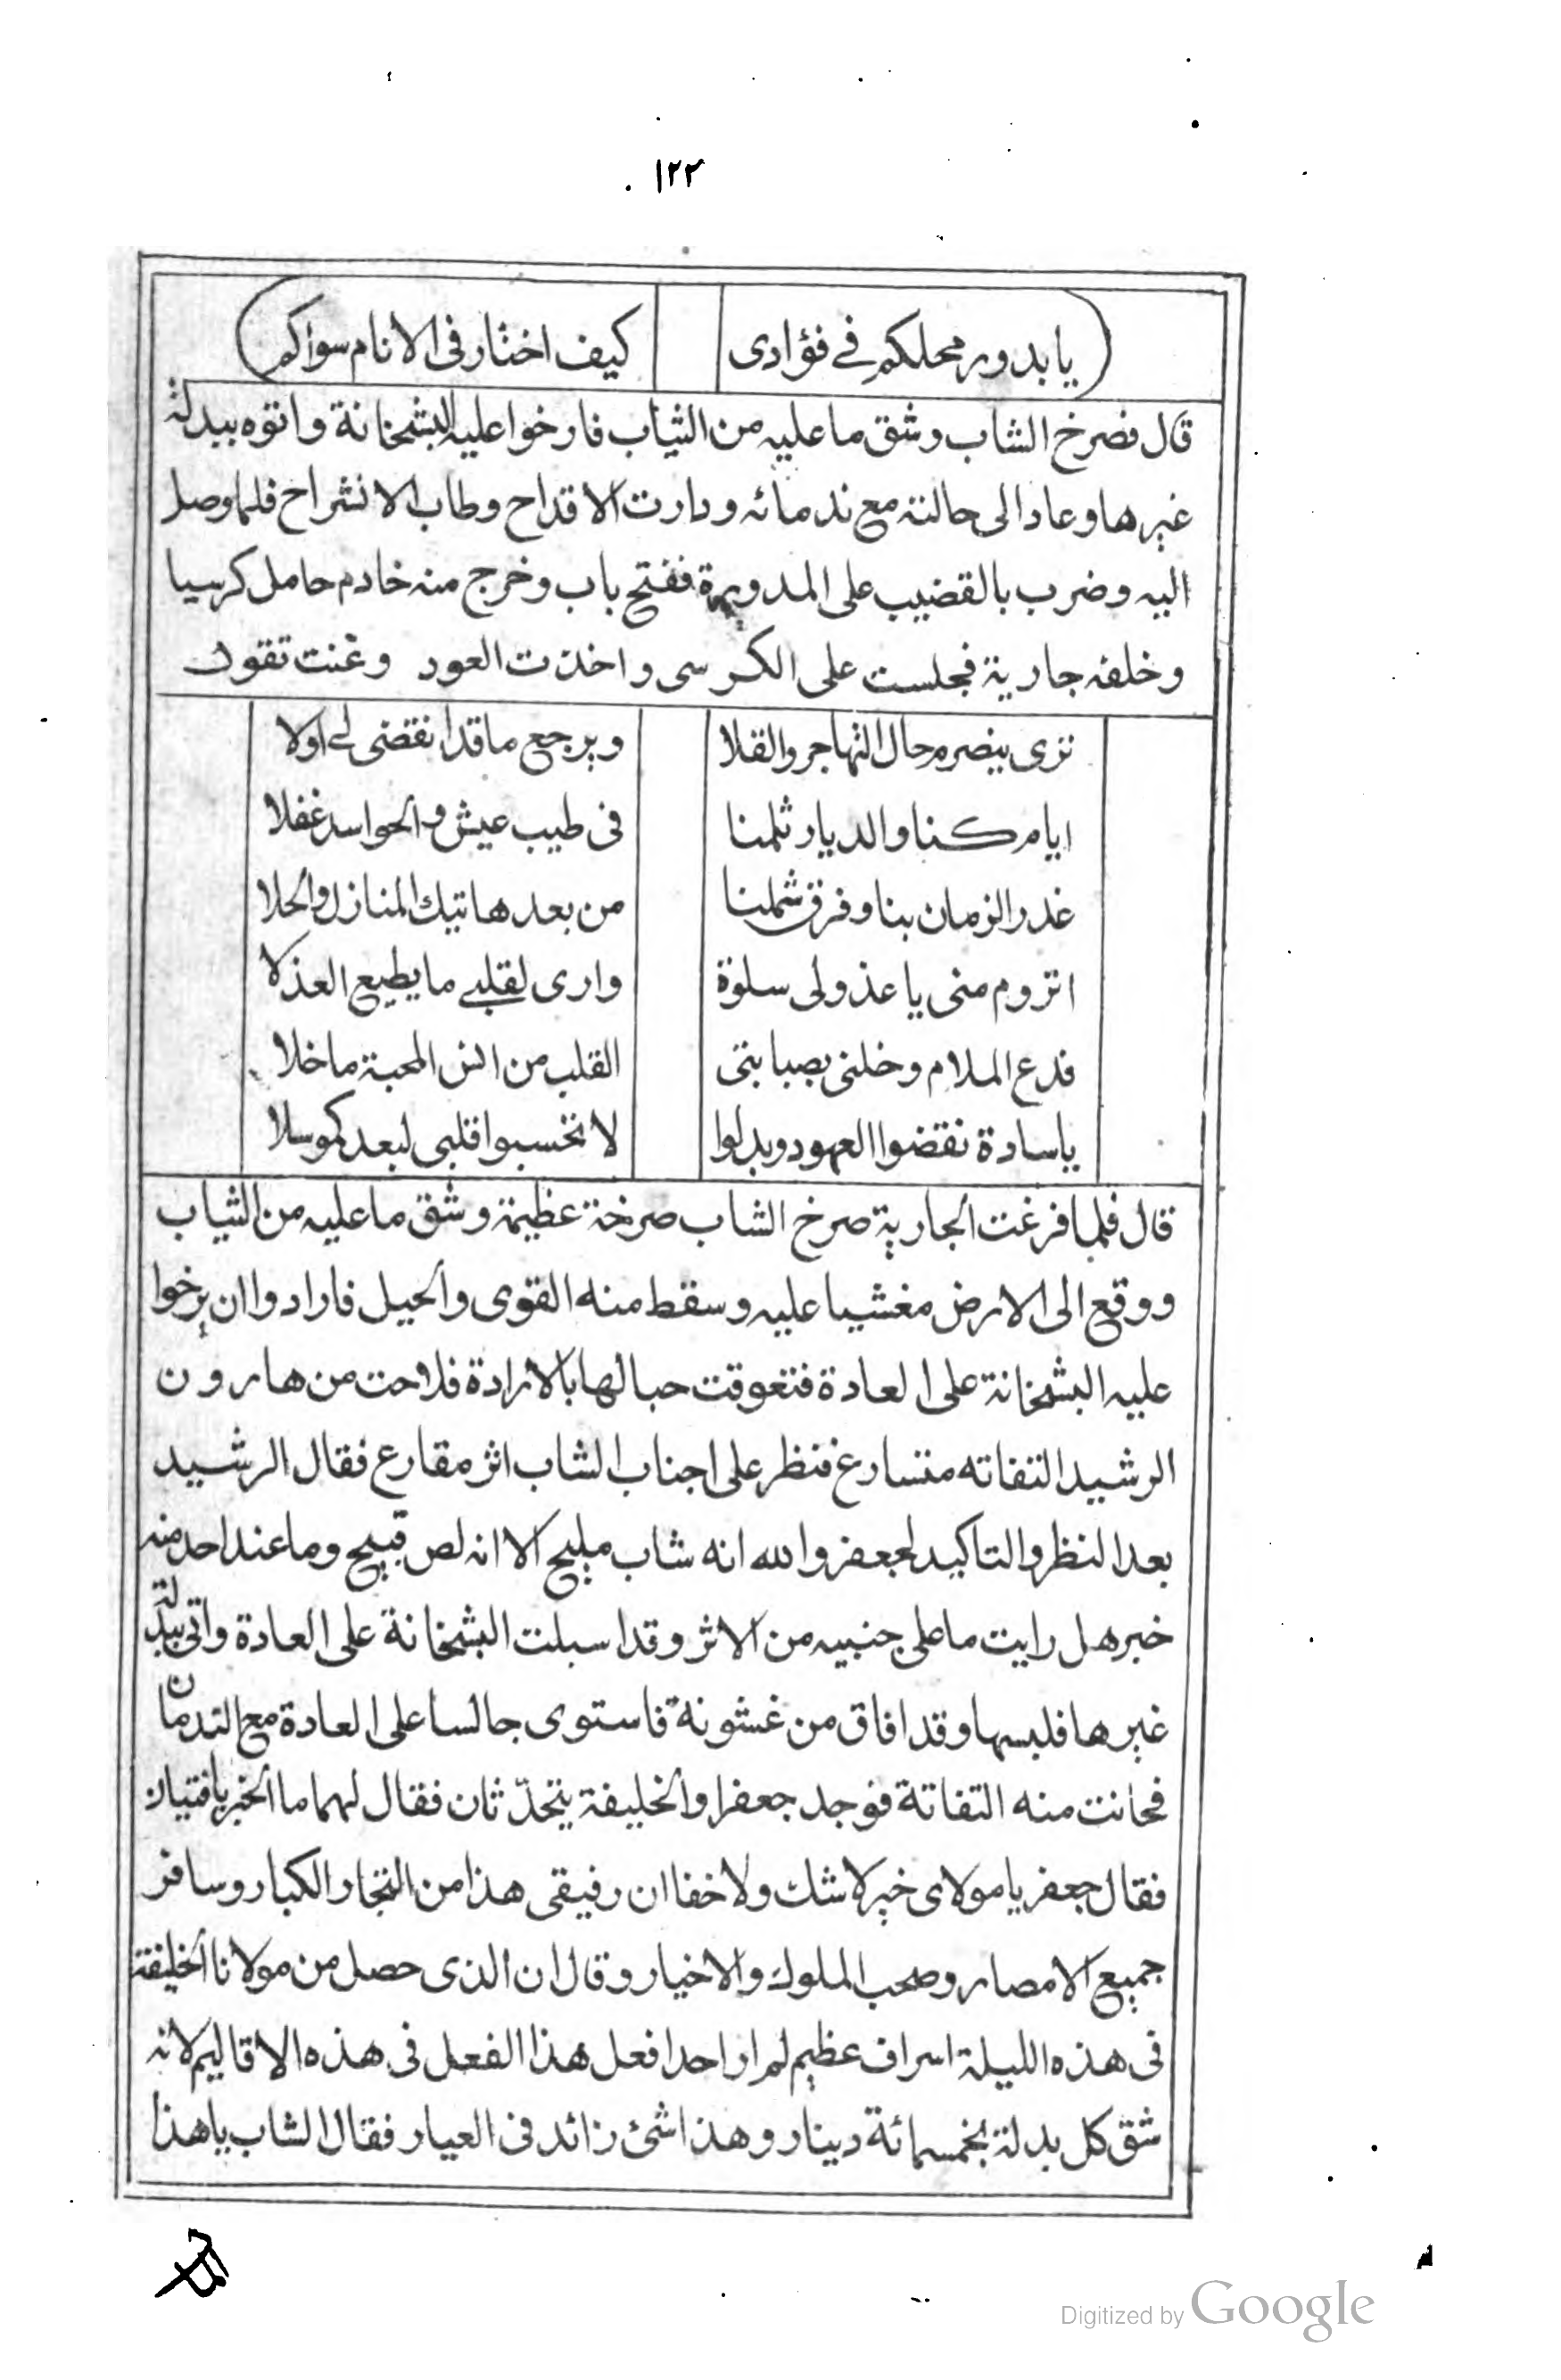 ١٢٢
يا بدور محلكم في فؤادى كيف اختار فى الانام سواكم
قال فصرخ الشاب وشق ما عليه من الثياب فارخوا عليه البشخانة واتوه ببدلة
غيرها وعاد الى حالته مع ندمائه ودارت الاقداح وطاب الانشراح فلما وصل
اليه وضرب بالقضيب على المدورة ففتح باب وخرج منه خادم حامل كرسيا
وخلفه جارية فجلست على الكرسى واخذت العود وغنت تقول
ترى ينصرم حال التهاجر والقلا ويرجع ما قد انقضى لى اولا
ايام كنا والديار تلمنا فى طيب عيش والحواسد غفلا
غدر الزمان بنا وفرق شملنا من بعد هاتيك المنازل والحلا
اتروم منى يا عذولى سلوة وارى لقلبي ما يطيع العذلا
فدع الملام وخلنى بصبابتى القلب من انس المحبة ما خلا
يا سادة نقضوا العهود وبدلوا لا تحسبوا قلبى لبعدكمو سلا
قال فلما فرغت الجارية صرخ الشاب صرخة عظيمة وشق ما عليه من الثياب
ووقع الى الارض مغشيا عليه وسقط منه القوى والحيل فارادوا ان يرخوا
عليه البشخانة على العادة فتعوقت حبالها بالارادة فلاحت من هارون
الرشيد التفاته متسارع فنظر على اجناب الشاب اثر مقارع فقال الرشيد
بعد النظر والتاكيد لجعفر والله انه شاب مليح الا انه لص قبيح وما عند احد منه
خبر هل رايت ما على جنبيه من الاثر وقد اسبلت البشخانة على العادة واتى ببدلة
غيرها فلبسها وقد افاق من غشوته فاستوى جالسا على العادة مع الندمان
فحانت منه التفاتة فوجد جعفرا والخليفة يتحدّثان فقال لهما ما الخبر يا فتيان
فقال جعفر يا مولاى خير لا شك ولا خفا ان رفيقى هذا من التجار الكبار وسافر
جميع الامصار وصحب الملوك والاخيار وقال ان الذى حصل من مولانا الخليفة
فى هذه الليلة اسراف عظيم لم ار احدا فعل هذا الفعل فى هذه الاقاليم لانه
شق كل بدلة بخمسمائة دينار وهذا شئ زائد فى العيار فقال الشاب يا هذا
Digitized by Google